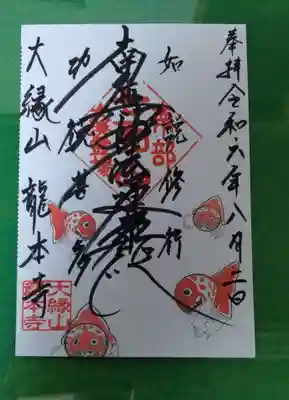 奉拝令和六年八月二日
如説修行
南無妙法蓮華経
功徳甚多
大縁山 龍本寺
大縁山
龍本寺